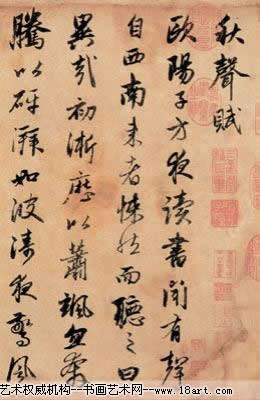 秋聲賦
歐陽子方夜讀書聞有聲
自西南來者悚然而聽之曰
異哉初淅瀝以蕭颯忽奔
騰以砰湃如波濤夜驚風
艺术权威机构--书画艺术网--www.18art.com